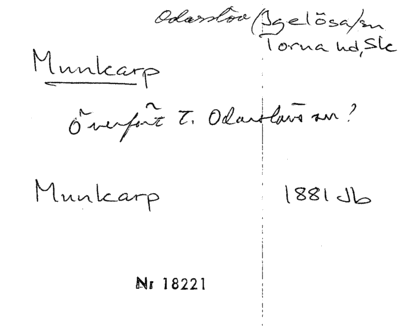 Odarslöv/Igelösa/sn
Torna hd, Sk
Munkarp
överfört t. Odarslövs sn?
Munkarp 1881 Jb
Nr 18221